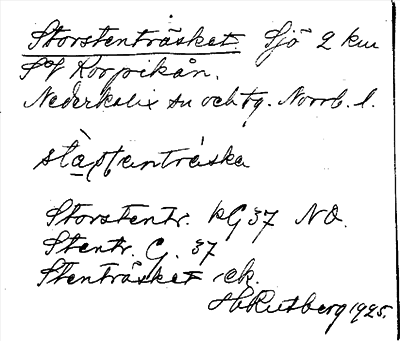 Storstenträsket Sjö 2 km
SV Korpikån.
Nederkalix sn och tg. Norrb. l.
stàrstenträska
Storstentr. KG 37 NO.
Stentr. G. 37
Stenträsket ek.
H. Rutberg 1925.